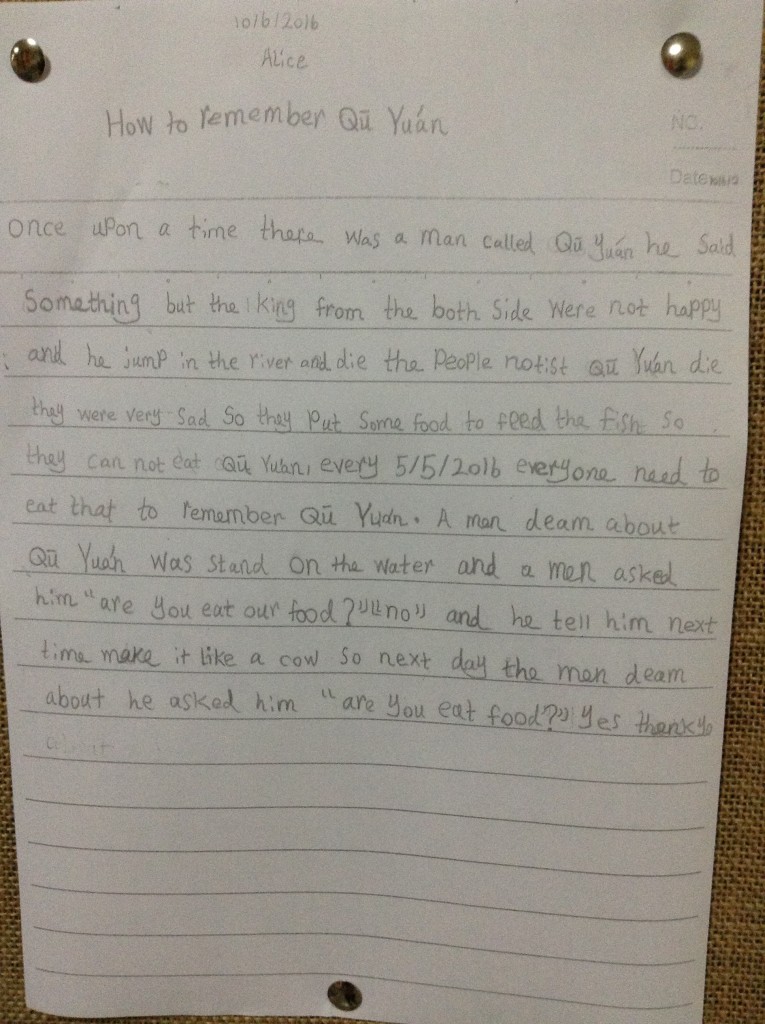 10/6/2016
Alice
How to remember Qū Yuán
NO.
Date
once upon a time there was a man called Qū Yuán he said
something but the king from the both side were not happy
and he jump in the river and die the people notist Qū Yuán die
they were very sad so they put some food to feed the fish so
they can not eat Qū Yuán, every 5/5/2016 everyone need to
eat that to remember Qū Yuán. A man deam about
Qū Yuán was stand on the water and a men asked
him "are you eat our food?" "no" and he tell him next
time make it like a cow so next day the men deam
about he asked him "are you eat food?" yes thank yo